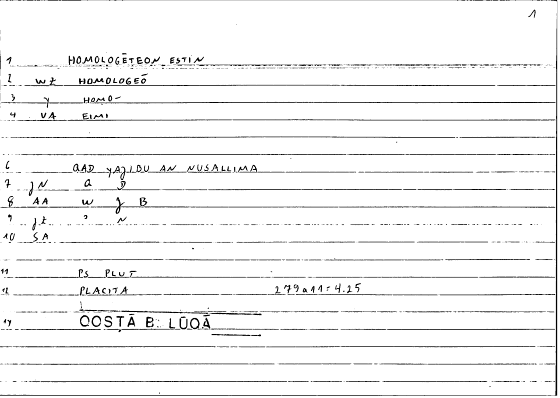 1
1 HOMOLOGĒTEON ESTIN
2 wt HOMOLOGEŌ
3 y HOMO-
4 VA EIMI
6 QAD YAJIDU AN NUSALLIMA
7 jN a D
8 AA w j B
9 jt ' N
10 SA
11 PS PLUT
12 PLACITA 279a11=4.25
14 QOSṬĀ B. LŪQĀ